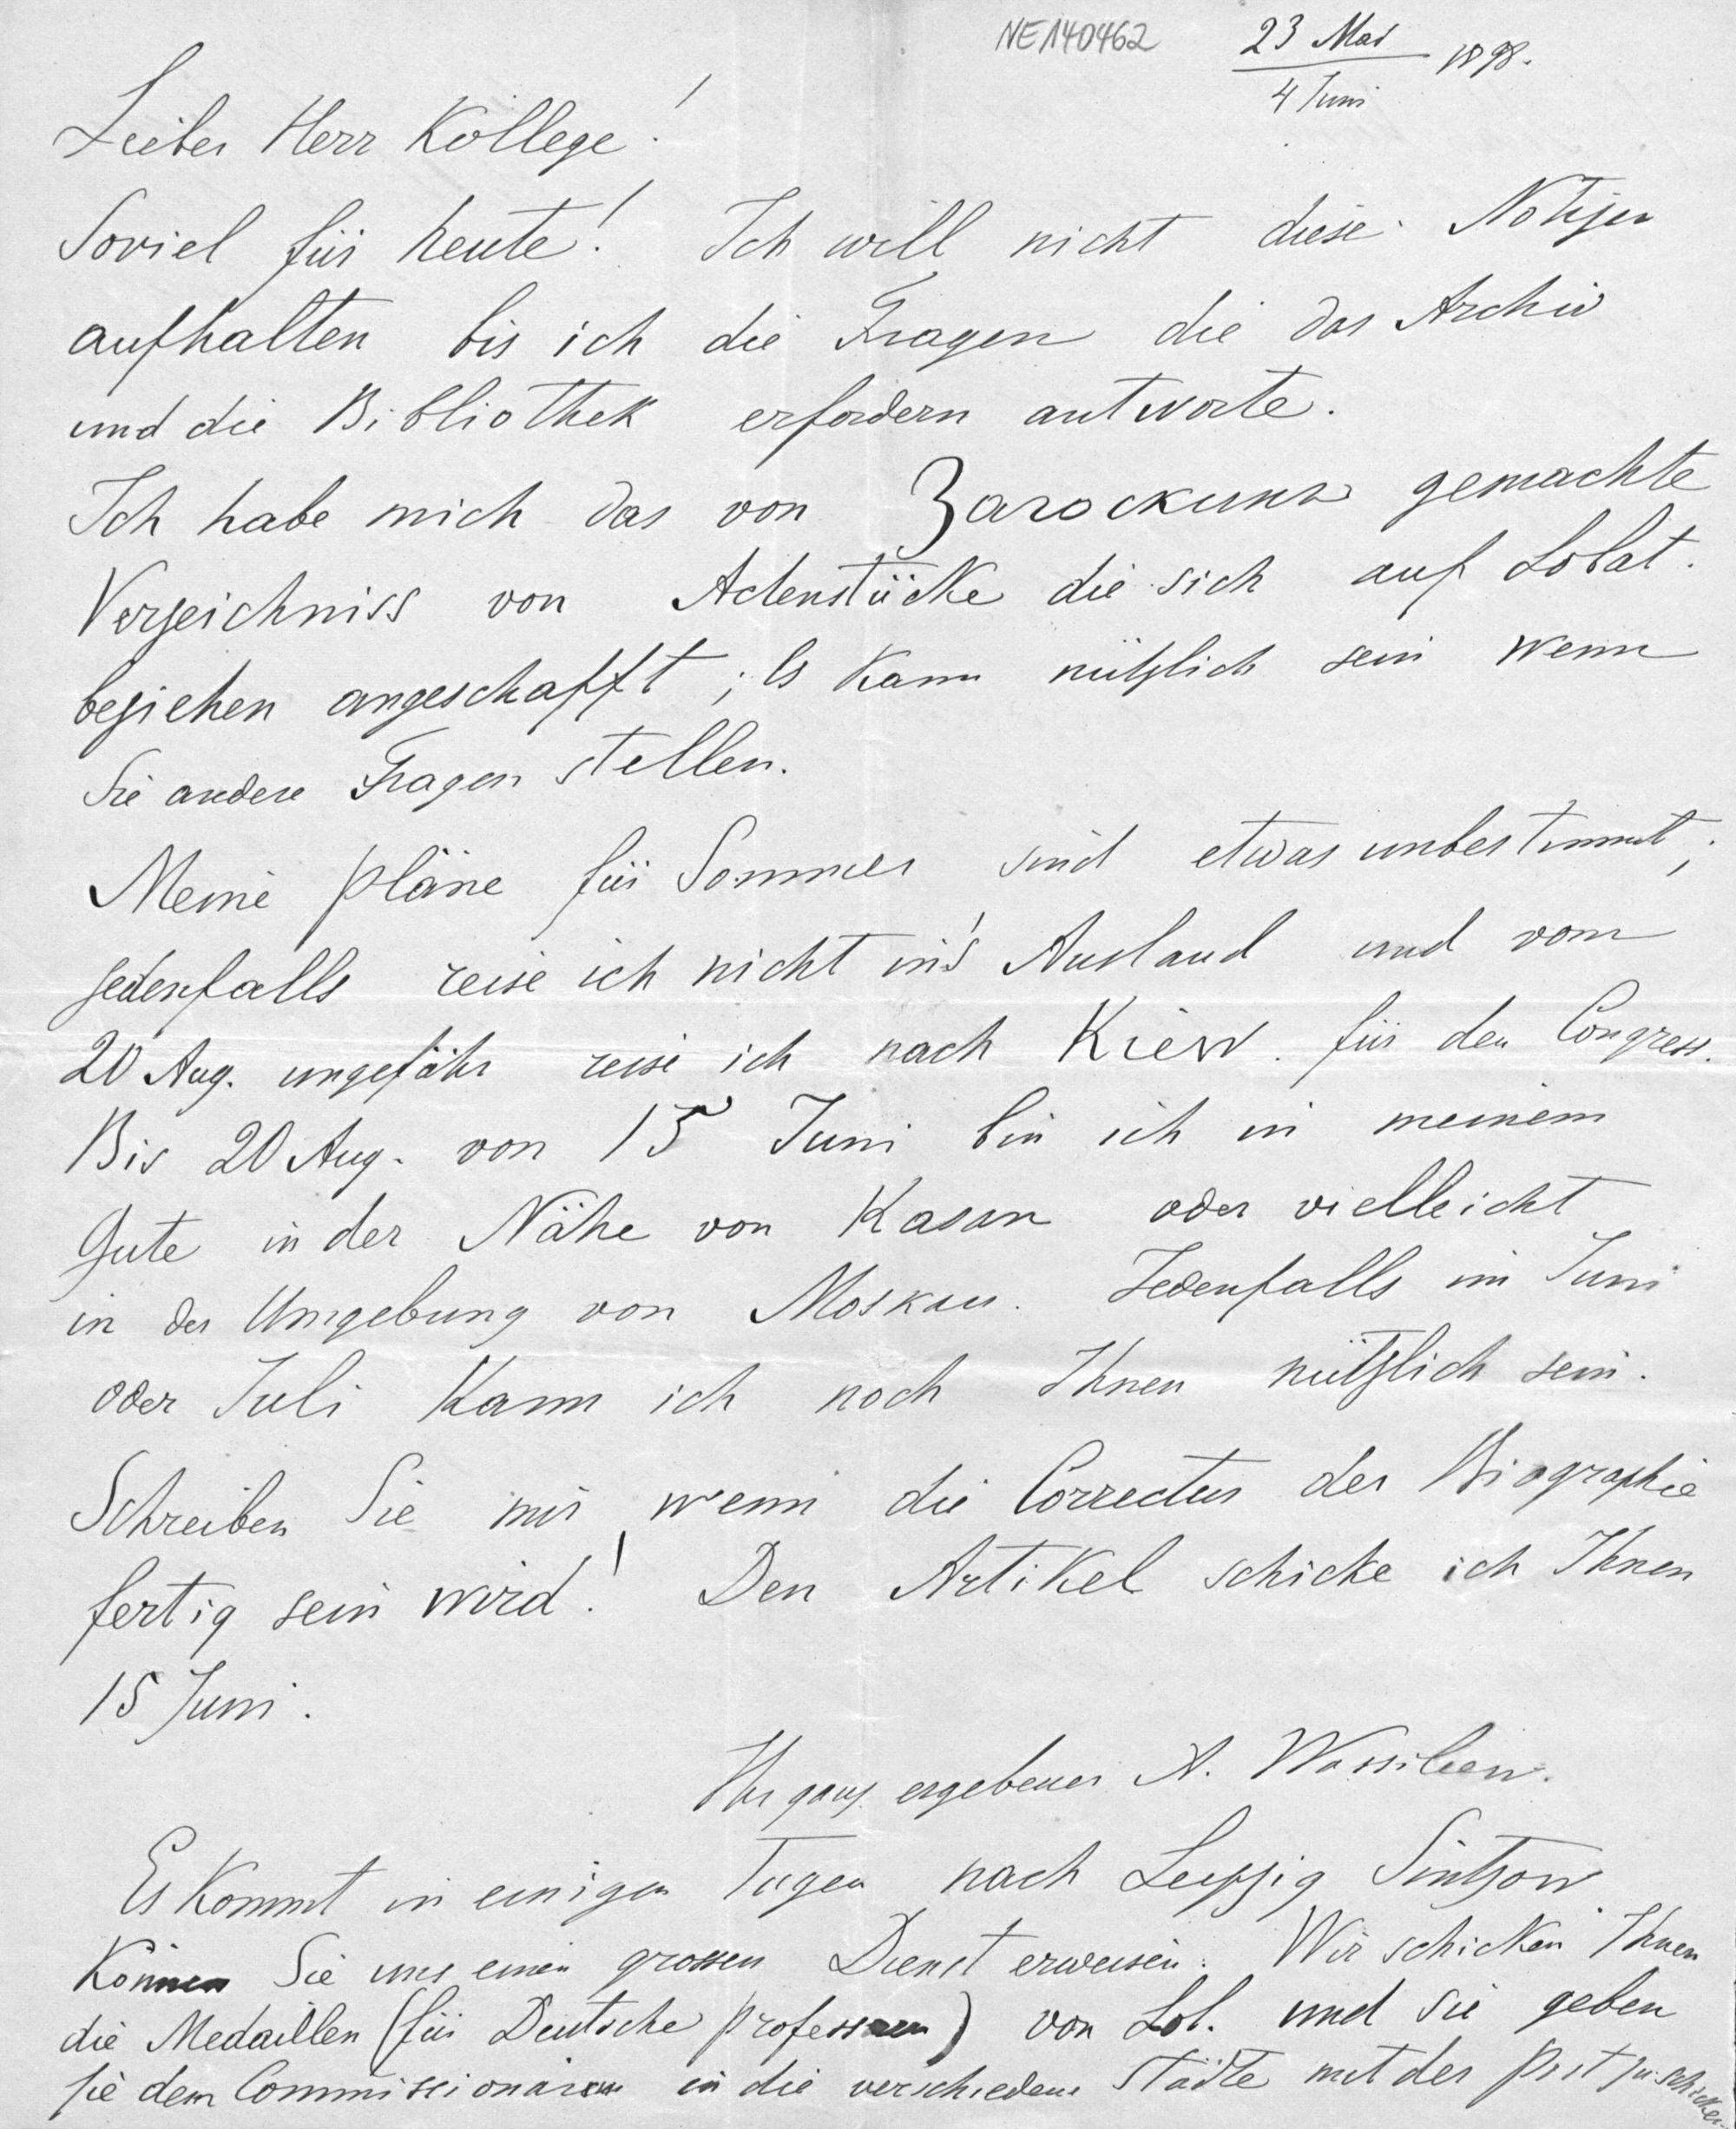 NE140462
23 Mai
4 Juni 1898.
Lieber Herr Kollege!
Soviel für heute! Ich will nicht diese Notizen
aufhalten bis ich die Fragen die das Archiv
und die Bibliothek erfordern antworte.
Ich habe mich das von Загоскинъ gemachte
Verzeichniss von Actenstücke die sich auf Lobat.
beziehen angeschafft; Es kann nützlich sein wenn
Sie andere Fragen stellen.
Meine Pläne für Sommer sind etwas unbestimmt;
jedenfalls reise ich nicht in's Ausland und vom
20 Aug. ungefähr reise ich nach Kiew für den Congress.
Bis 20 Aug. von 15 Juni bin ich in meinem
Gute in der Nähe von Kasan oder vielleicht
in der Umgebung von Moskau. Jedenfalls im Juni
oder Juli kann ich noch Ihnen nützlich sein.
Schreiben Sie mir, wenn die Correctur der Biographie
fertig sein wird! Den Artikel schicke ich Ihnen
15 Juni.
Ihr ganz ergebener A. Wassiliew.
Es kommt in einigen Tagen nach Leipzig Sintzow
Können Sie uns einen grossen Dienst erweisen. Wir schicken Ihnen
die Medaillen (für Deutsche Professoren) von Lob. und Sie geben
sie dem Commissionären in die verschiedene Städte mit der Post zu schicken.